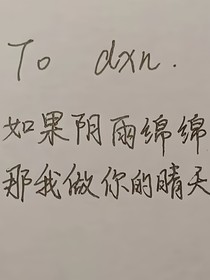 To dxn.
如果阴雨绵绵
那我做你的晴天